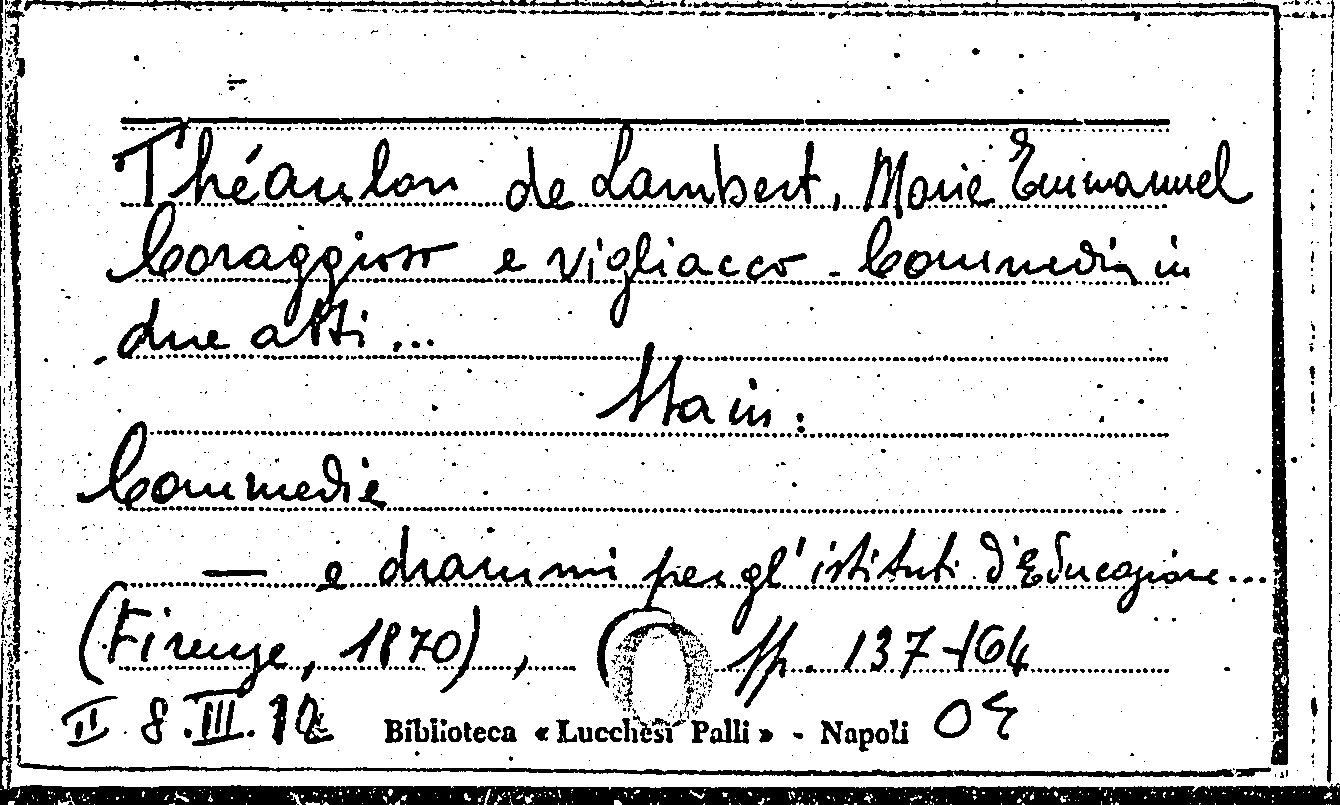 Théaulon de Lambert, Marie Emmanuel
Coraggioso e vigliacco - Commedia in
due atti...
Sta in:
Commedie
— e drammi per gl'istituti d'Educazione...
(Firenze, 1870), pp. 137-164
II 8.III.12 Biblioteca « Lucchesi Palli » - Napoli